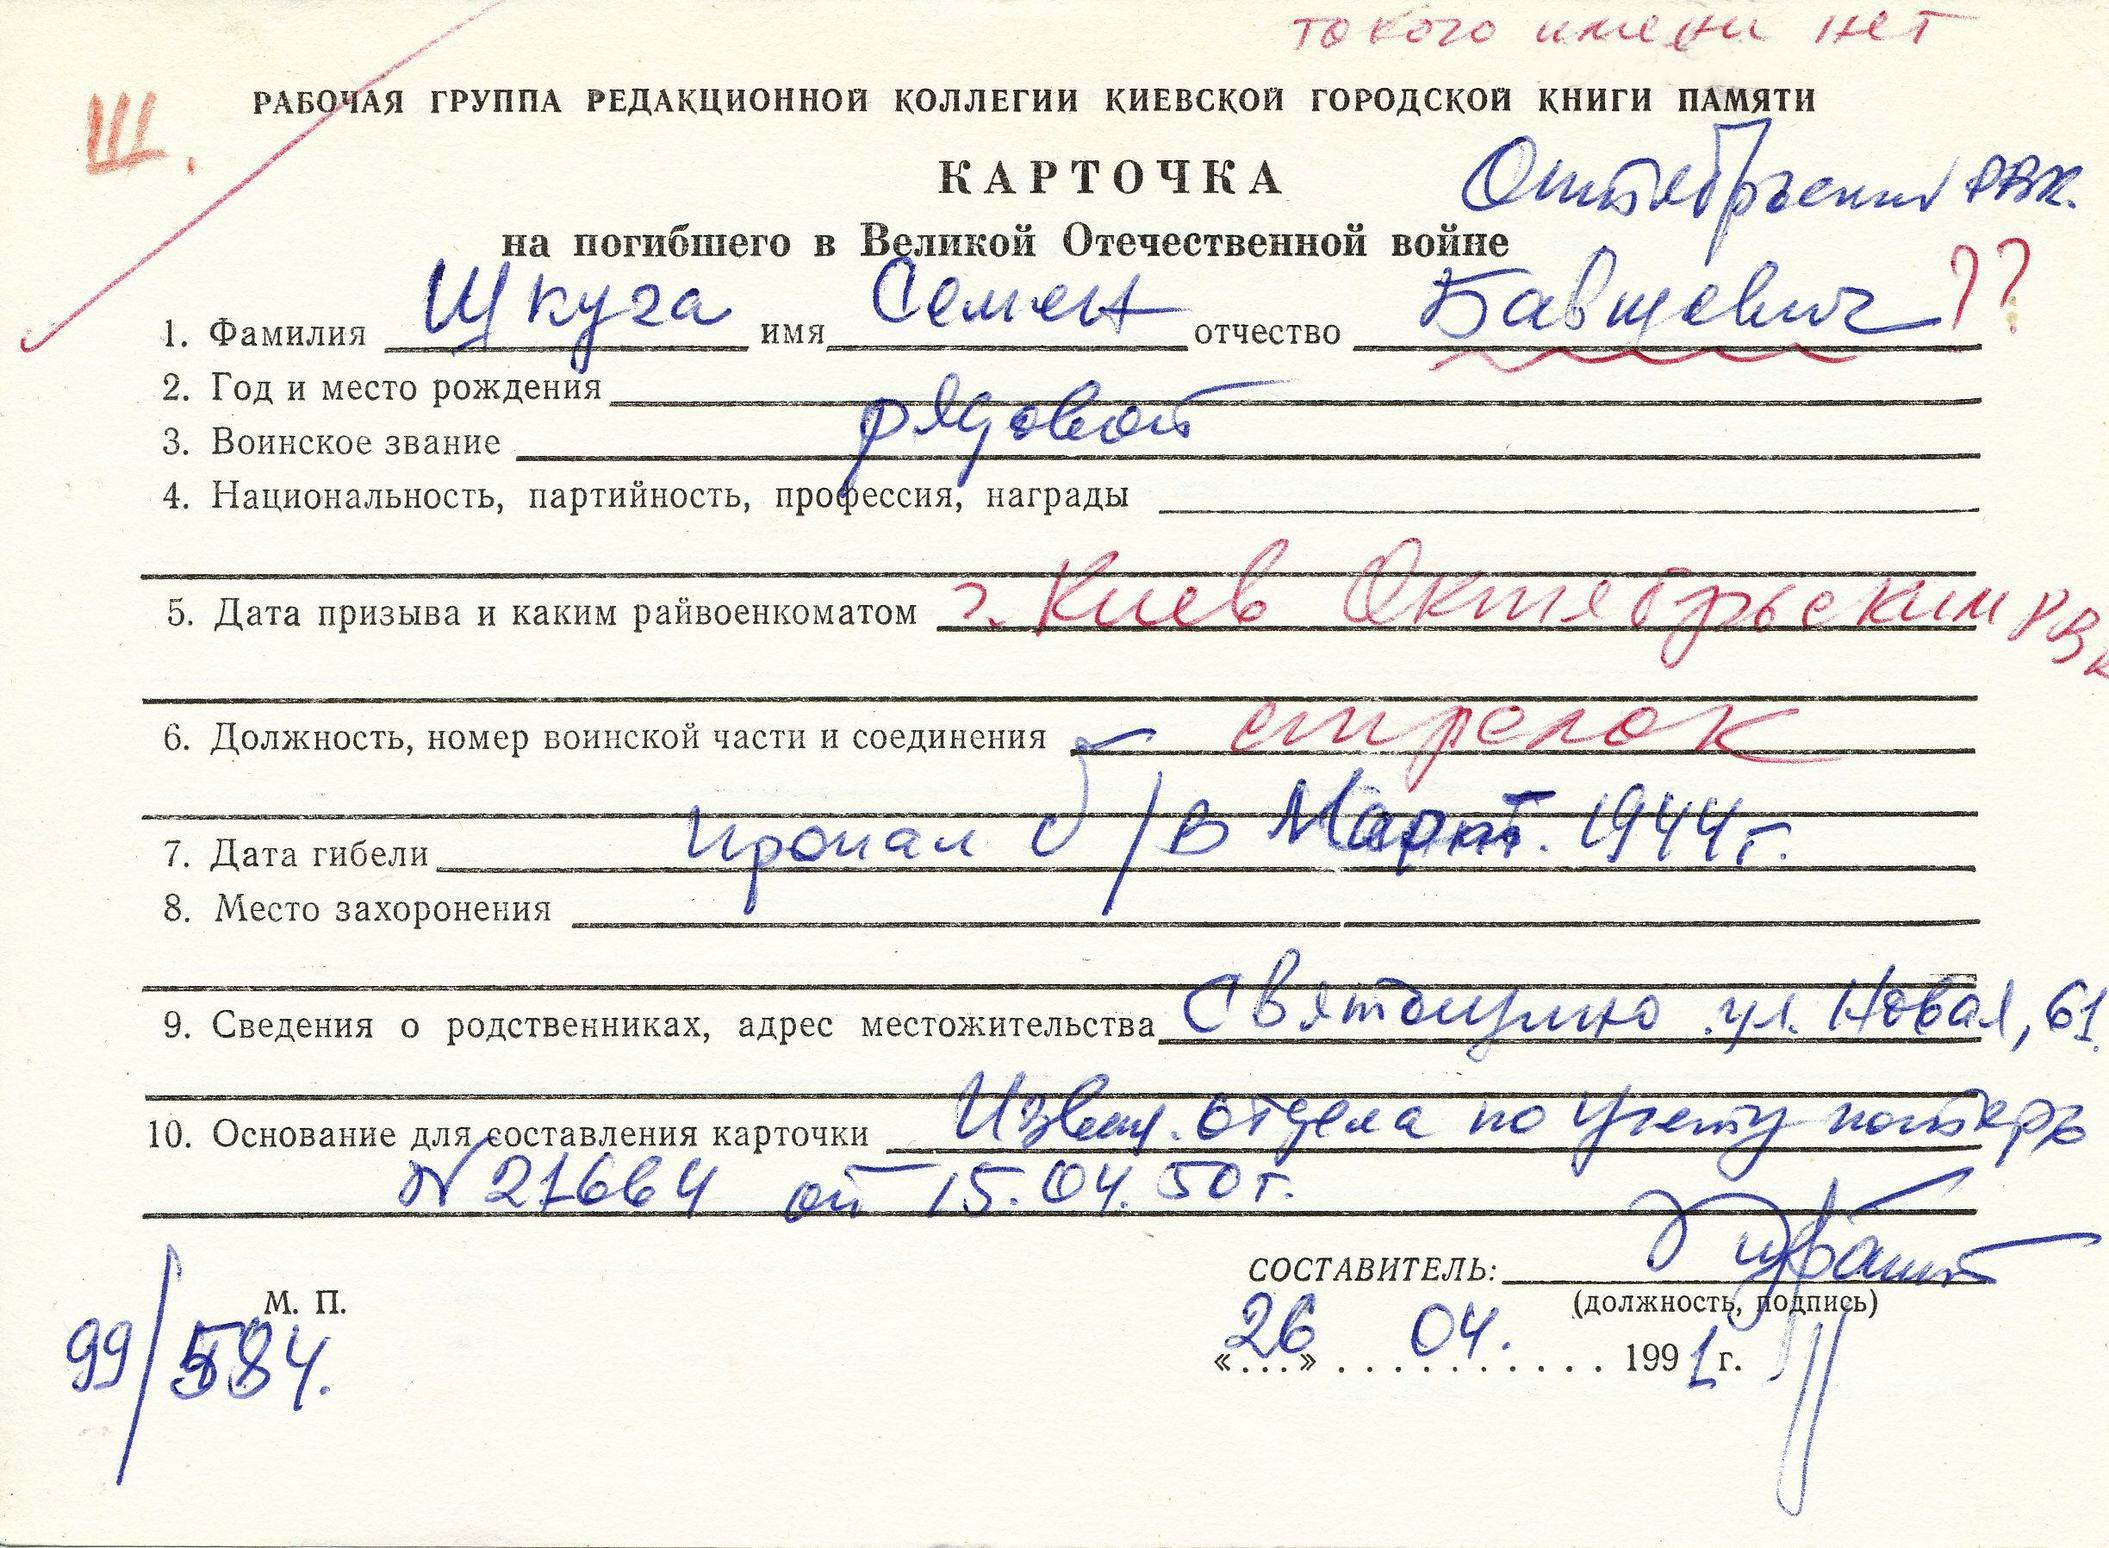 такого имени нет
Ш.
РАБОЧАЯ ГРУППА РЕДАКЦИОННОЙ КОЛЛЕГИИ КИЕВСКОЙ ГОРОДСКОЙ КНИГИ ПАМЯТИ
КАРТОЧКА
Октябрьский РВК.
на погибшего в Великой Отечественной войне
1. Фамилия Шкуга имя Семен отчество Бавшевич ??
2. Год и место рождения
3. Воинское звание рядовой
4. Национальность, партийность, профессия, награды
5. Дата призыва и каким райвоенкоматом г. Киев Октябрьским РВК
6. Должность, номер воинской части и соединения стрелок
7. Дата гибели пропал б/в Март. 1944 г.
8. Место захоронения
9. Сведения о родственниках, адрес местожительства ул. Новая, 61.
10. Основание для составления карточки Извещ. отдела по учету потерь
N 21664 от 15.04.50 г.
СОСТАВИТЕЛЬ:
М. П.
(должность, подпись)
99/584.
«26» 04. 1991 г.